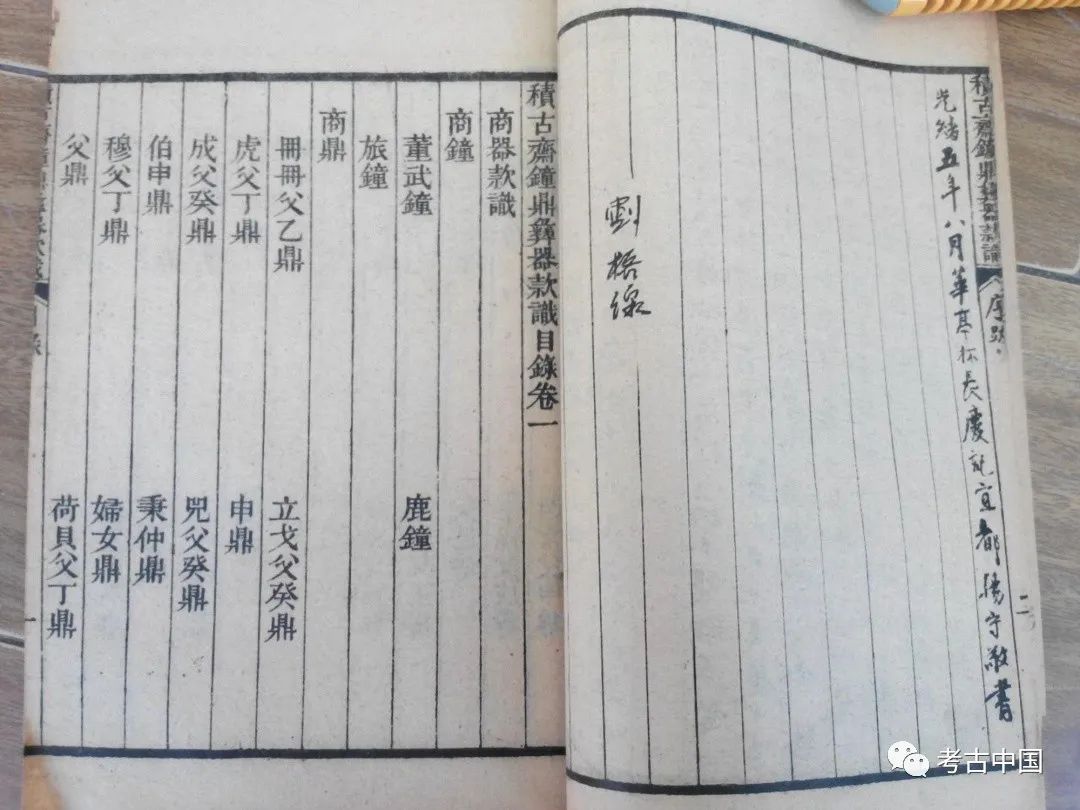 積古齋鐘鼎彝器款識
序跋
二
光緒五年八月華 長慶記宜都楊守敬書
線
積古齋鐘鼎彝器款識目錄卷一
商器款識
商鐘
董武鐘 鹿鐘
旅鐘
商鼎
冊冊父乙鼎 立戈父癸鼎
虎父丁鼎 申鼎
成父癸鼎 兕父癸鼎
伯申鼎 秉仲鼎
穆父丁鼎 婦女鼎
父鼎 荷貝父丁鼎
目錄
一
考古中国